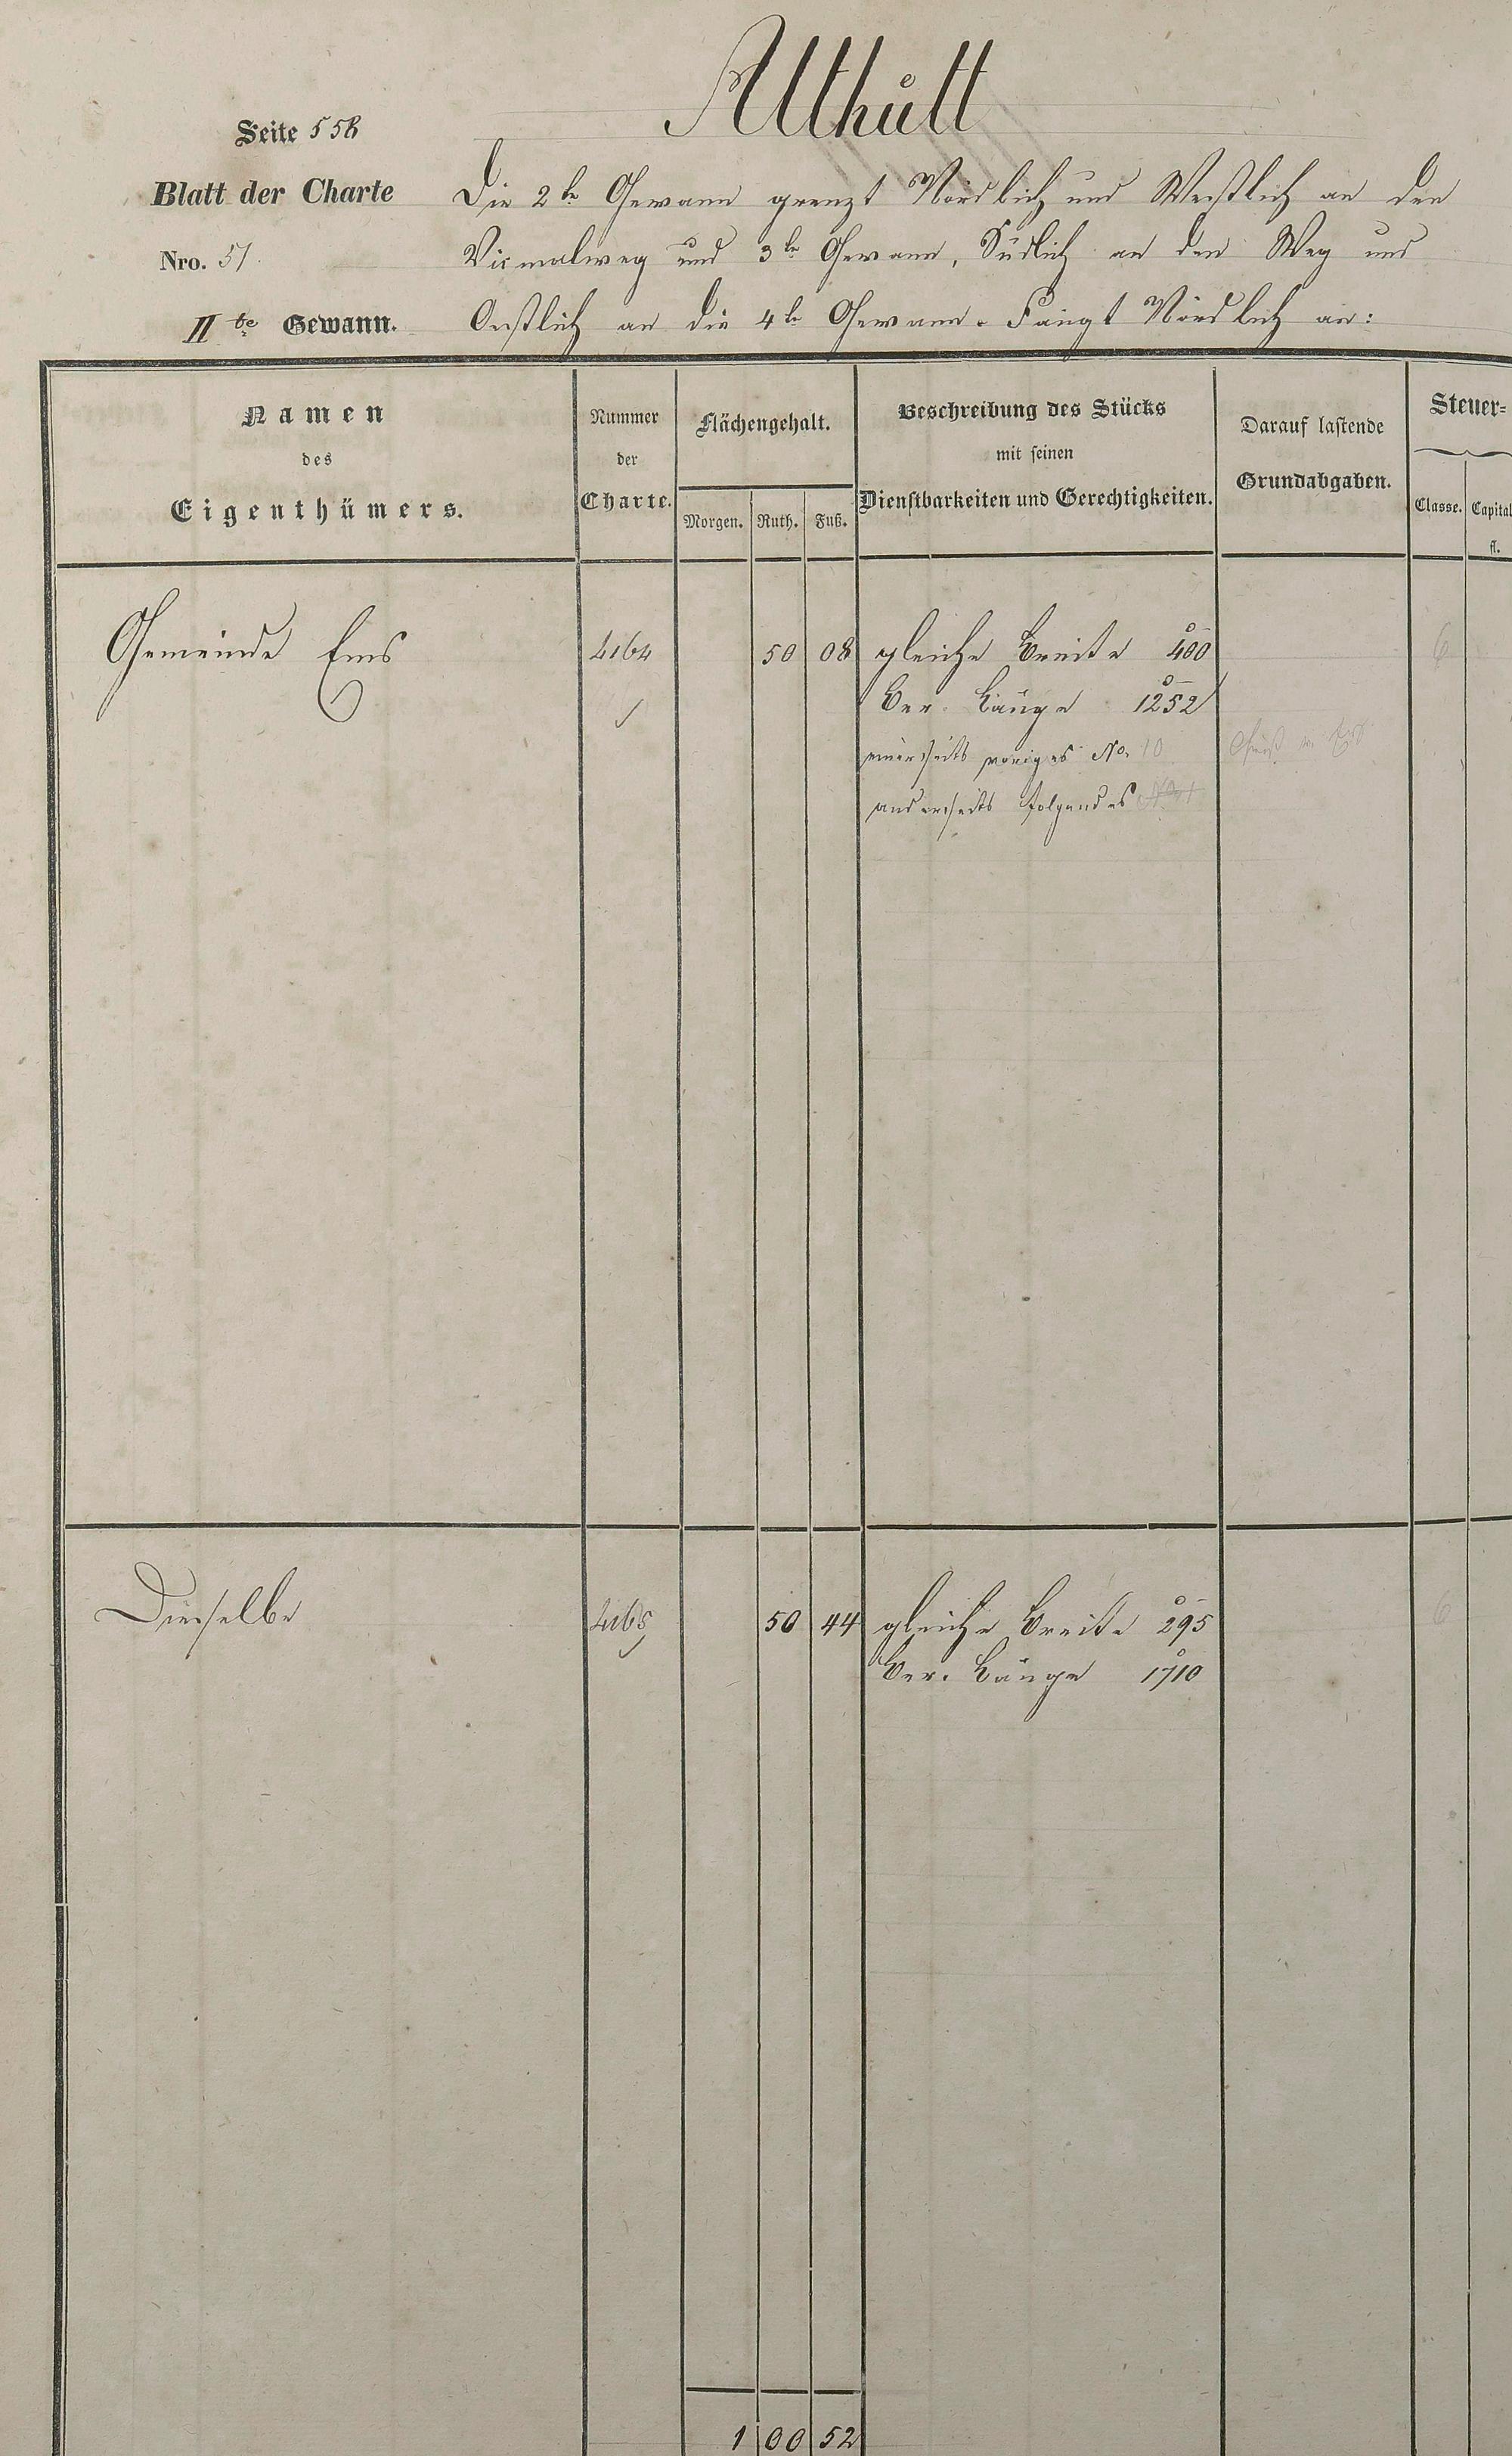 Althütt
Seite 558
Blatt der Charte
Nro. 51.
II te Gewann.
Die 2te Gewann grenzt Nördlich und Westlich an den
Vicinalweg und 3te Gewann, Südlich an den Weg und
Oestlich an die 4te Gewann. Fängt Nördlich an:
Namen
des
Eigenthümers.
Nummer
der
Charte.
Flächengehalt.
Morgen. Ruth. Fuß.
Beschreibung des Stücks
mit seinen
Dienstbarkeiten und Gerechtigkeiten.
Darauf lastende
Grundabgaben.
Steuer-
Classe. Capital
fl.
Gemeinde Ems 4164 50 08 gleiche Breite 400 6
Ber. Länge 1252
einerseits voriges No. 10
anderseits folgendes
Dieselbe 4165 50 44 gleiche Breite 295 6
Ber. Länge 1710
1 00 52